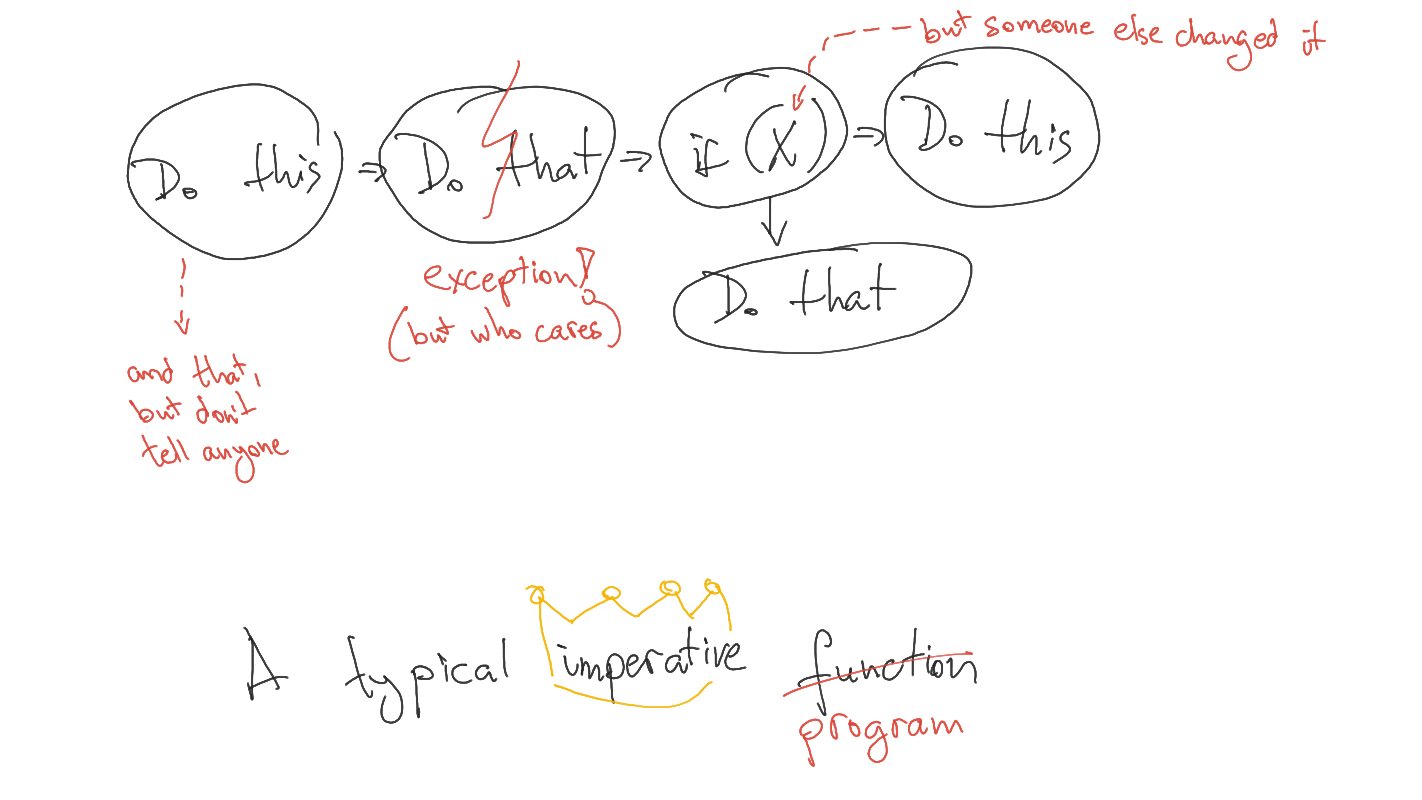 but someone else changed it
Do this ⇒ Do that ⇒ if (X) ⇒ Do this
exception!
(but who cares)
Do that
and that,
but don't
tell anyone
A typical imperative function
program